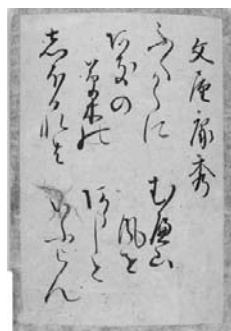 文屋康秀
ふくからに
あきの
草木の
しほるれは
むへ山
風を
あらしと
いふらん